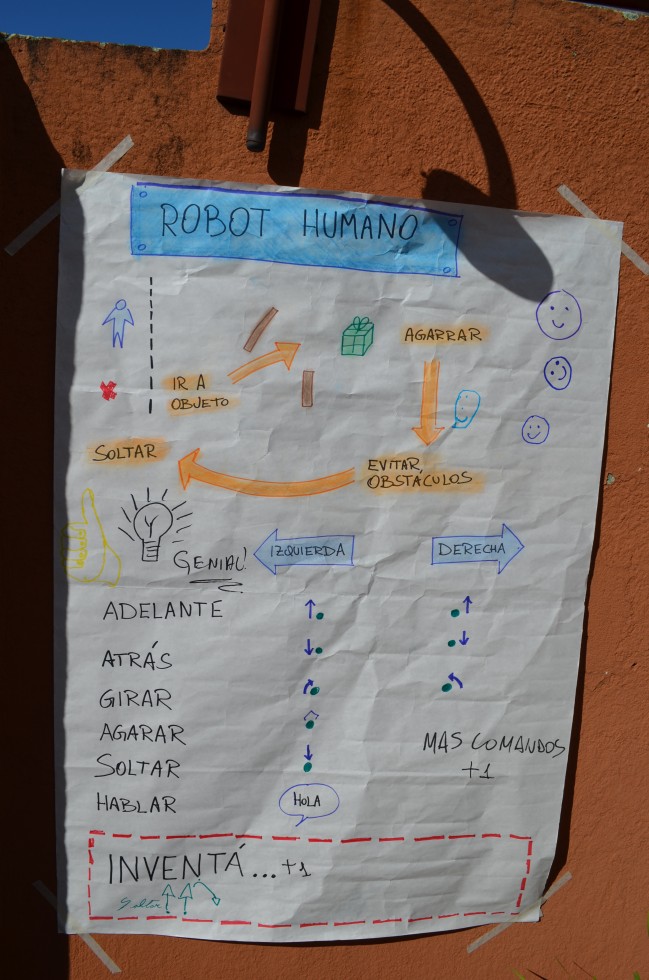 ROBOT HUMANO
AGARRAR
IR A
OBJETO
SOLTAR
EVITAR
OBSTÁCULOS
GENIAL!
IZQUIERDA
DERECHA
ADELANTE
ATRÁS
GIRAR
AGARAR
SOLTAR
HABLAR
HOLA
MAS COMANDOS
+1
INVENTÁ...+1
Saltar